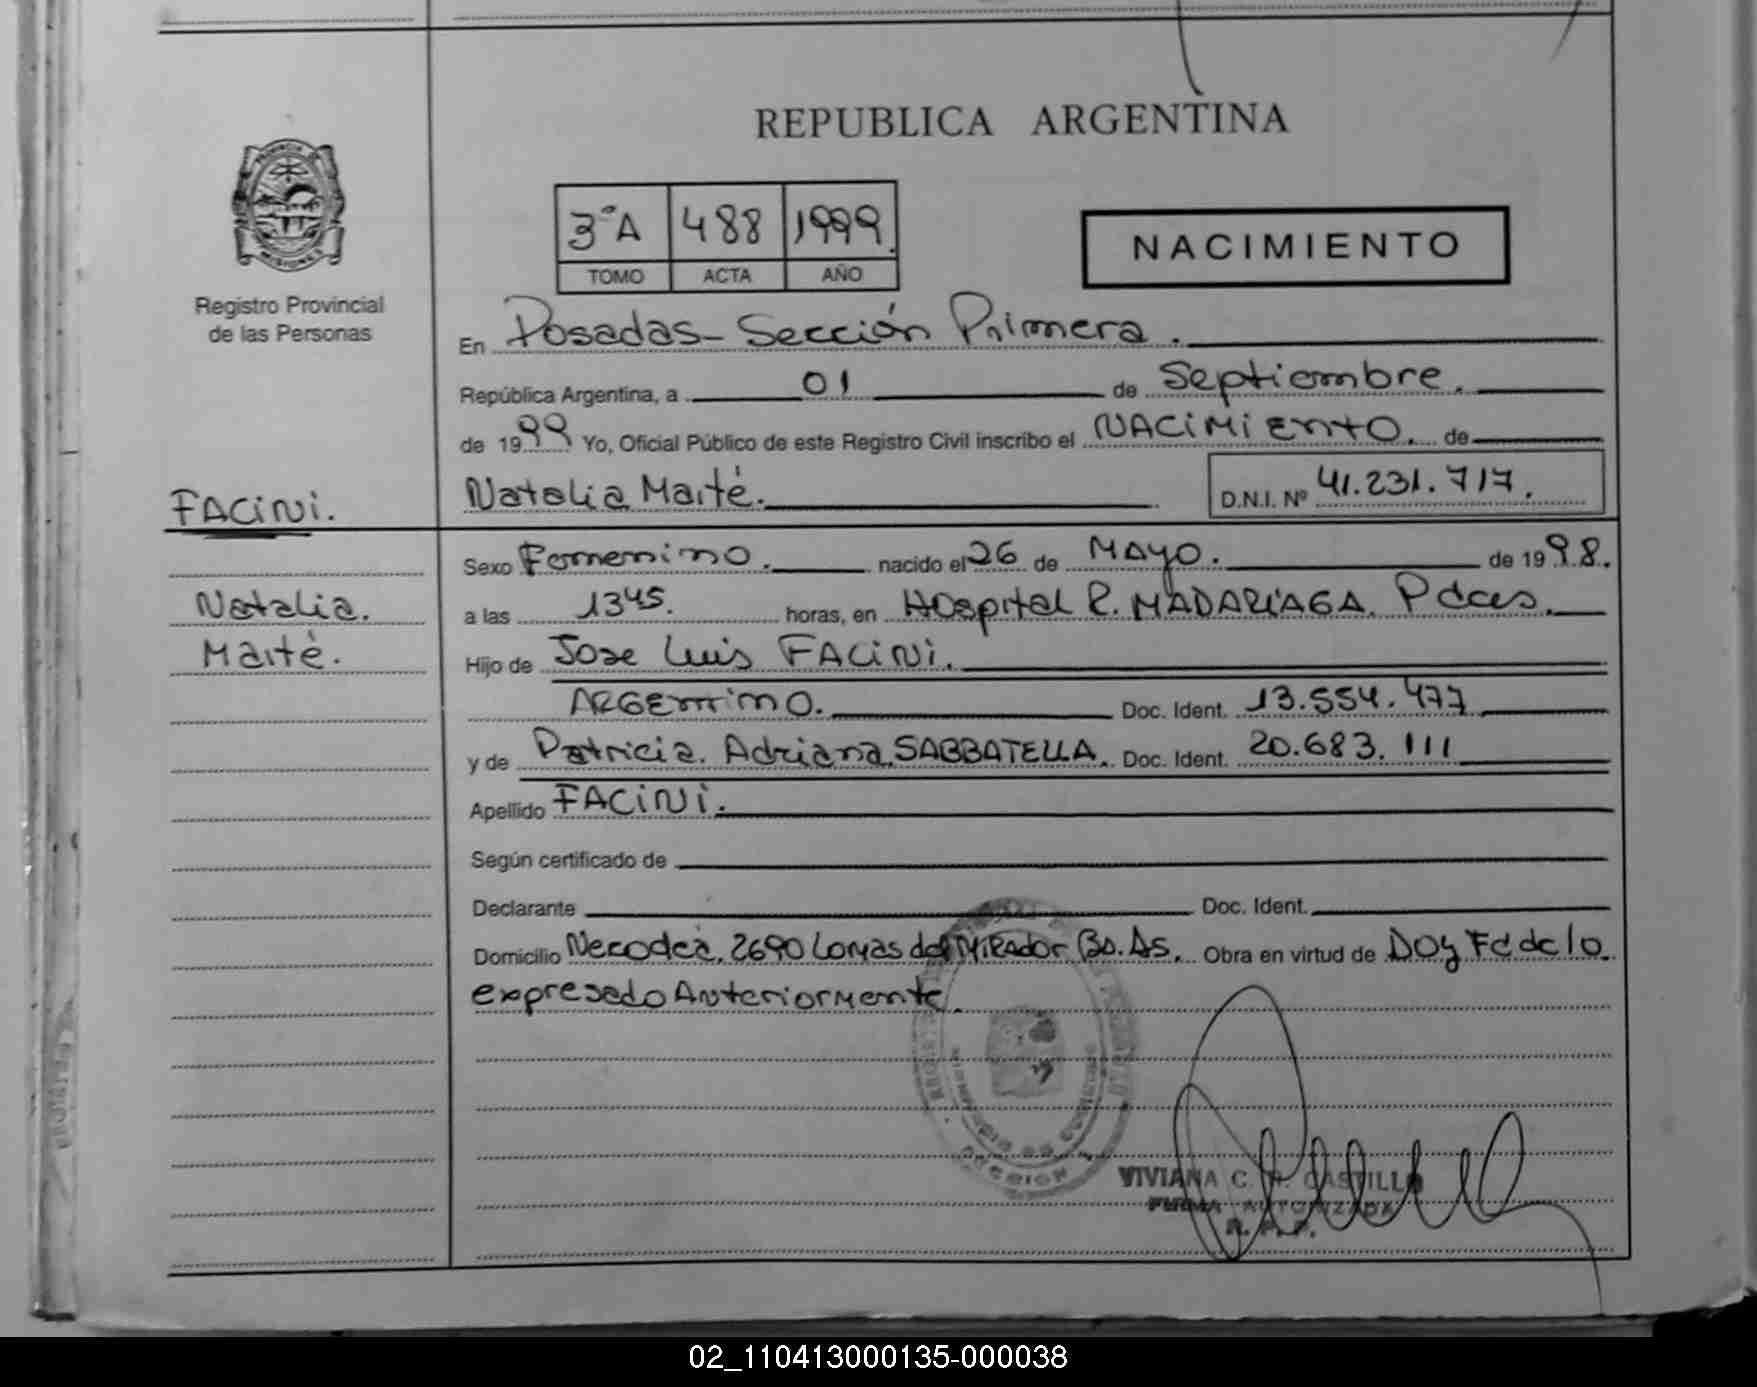 REPUBLICA ARGENTINA
PROVINCIA DE
MISIONES
Registro Provincial
de las Personas
3ªA 488 1999
TOMO ACTA AÑO
NACIMIENTO
En Posadas - Sección Primera.
República Argentina, a 01 de Septiembre.
de 1999 Yo, Oficial Público de este Registro Civil inscribo el NACIMIENTO. de
Natalia Maité. D.N.I. Nº 41.231.717.
FACINI.
Natalia.
Maité.
Sexo Femenino. nacido el 26 de MAYO. de 1998.
a las 1345. horas, en Hospital R. MADARIAGA. Pdas.
Hijo de Jose Luis FACINI.
ARGENTINO. Doc. Ident. 13.554.477
y de Patricia. Adriana. SABBATELLA. Doc. Ident. 20.683.111
Apellido FACINI.
Según certificado de
Declarante Doc. Ident.
Domicilio 2690 Lomas del Mirador Bs. As. Obra en virtud de Doy Fé de lo
expresado Anteriormente.
VIVIANA C. CASTILLO
FIRMA AUTORIZADA
R. P. P.
02_110413000135-000038